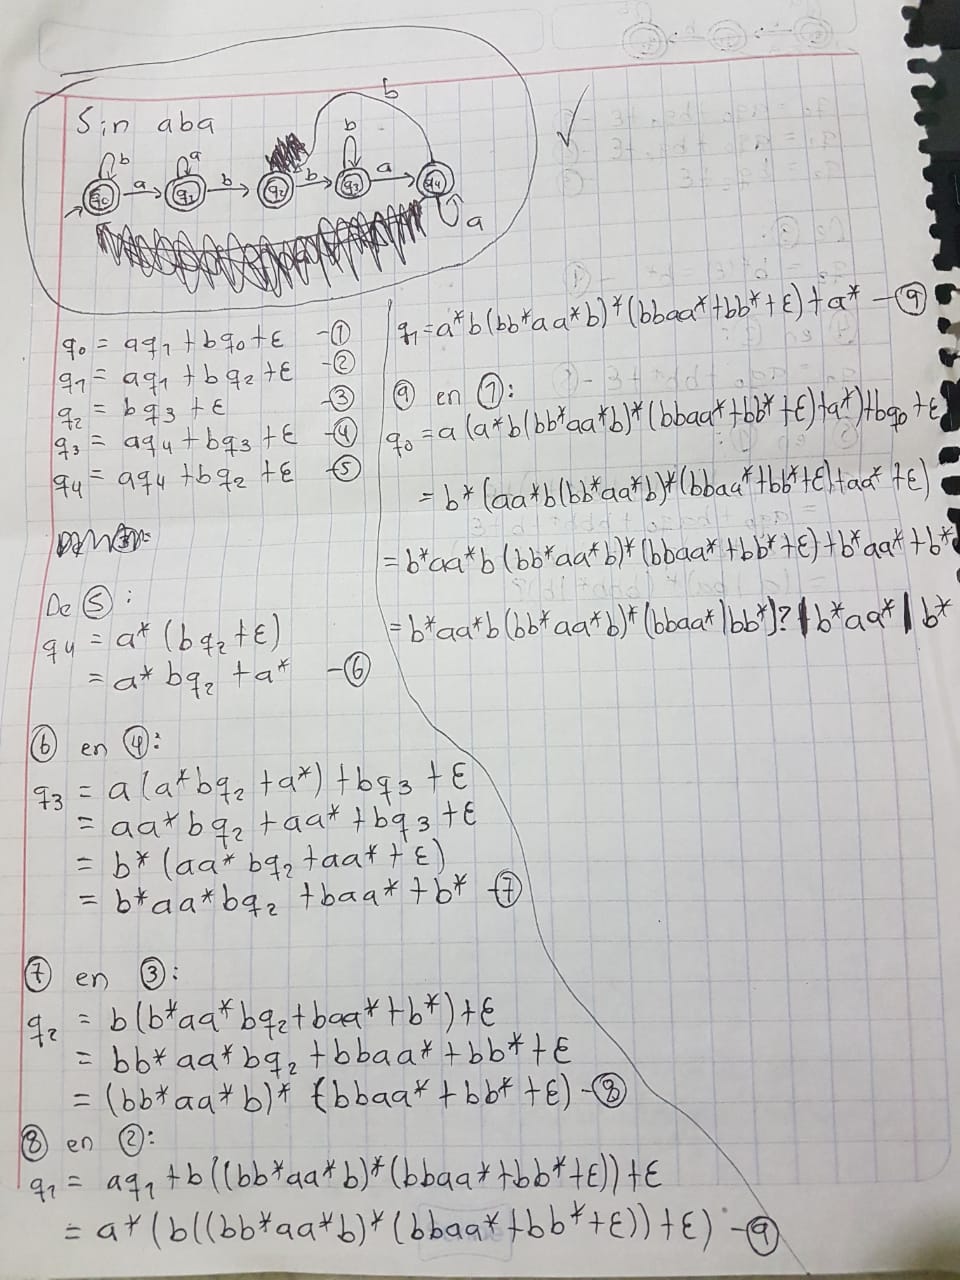 Sin aba
b
b a b
q0 a q1 b q2 b q3 a q4
a
q0 = aq1 + bq0 + ε -①
q1 = aq1 + bq2 + ε -②
q2 = bq3 + ε -③
q3 = aq4 + bq3 + ε -④
q4 = aq4 + bq2 + ε -⑤
De ⑤:
q4 = a* (bq2 + ε)
= a* bq2 + a* -⑥
⑥ en ④:
q3 = a(a*bq2 + a*) + bq3 + ε
= aa*bq2 + aa* + bq3 + ε
= b*(aa*bq2 + aa* + ε)
= b*aa*bq2 + baa* + b* -⑦
⑦ en ③:
q2 = b(b*aa*bq2 + baa* + b*) + ε
= bb*aa*bq2 + bbaa* + bb* + ε
= (bb*aa*b)* (bbaa* + bb* + ε) -⑧
⑧ en ②:
q1 = aq1 + b((bb*aa*b)*(bbaa* + bb* + ε)) + ε
= a*(b((bb*aa*b)*(bbaa* + bb* + ε)) + ε) -⑨
q1 = a*b(bb*aa*b)*(bbaa* + bb* + ε) + a* -⑨
⑨ en ①:
q0 = a(a*b(bb*aa*b)*(bbaa* + bb* + ε) + a*) + bq0 + ε
= b*(aa*b(bb*aa*b)*(bbaa* + bb* + ε) + aa* + ε)
= b*aa*b(bb*aa*b)*(bbaa* + bb* + ε) + b*aa* + b*
= b*aa*b(bb*aa*b)*(bbaa*|bb*)?|b*aa*|b*